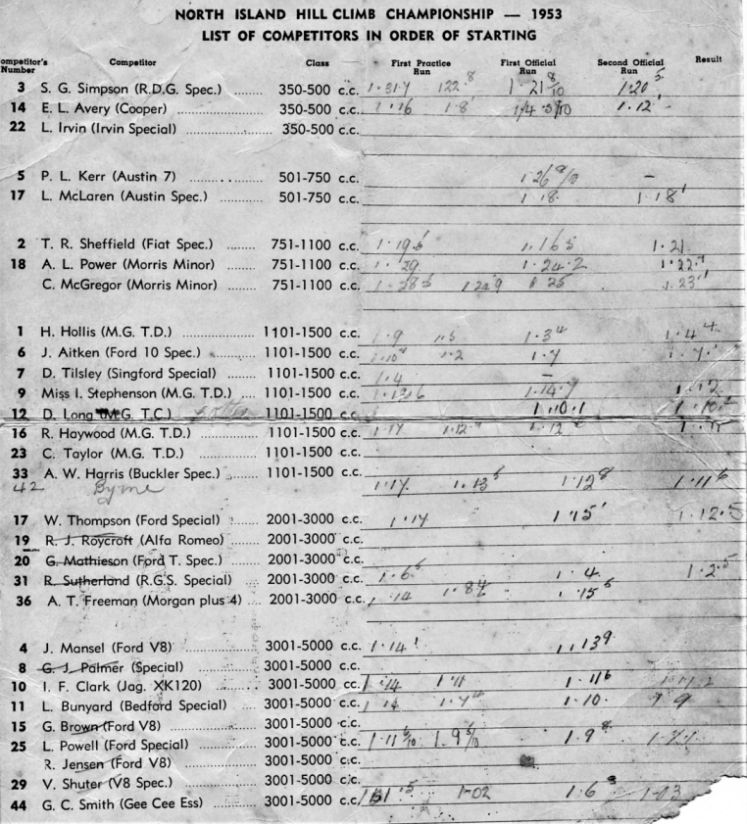 NORTH ISLAND HILL CLIMB CHAMPIONSHIP — 1953
LIST OF COMPETITORS IN ORDER OF STARTING
ompetitor's Number Competitor Class First Practice Run First Official Run Second Official Run Result
3 S. G. Simpson (R.D.G. Spec.) ........ 350-500 c.c. 1·31·7 122·8 1·21 8/10 1·20 5
14 E. L. Avery (Cooper) .................. 350-500 c.c. 1·16 1·8 1·12
22 L. Irvin (Irvin Special) ................ 350-500 c.c.
5 P. L. Kerr (Austin 7) .................. 501-750 c.c. –
17 L. McLaren (Austin Spec.) .......... 501-750 c.c. 1·18 1·18
2 T. R. Sheffield (Fiat Spec.) ........ 751-1100 c.c. 1·19 1·16 5 1·21
18 A. L. Power (Morris Minor) ........ 751-1100 c.c. 1·29 1·24·2 1·22
C. McGregor (Morris Minor) ........ 751-1100 c.c. 1·25 1·23
1 H. Hollis (M.G. T.D.) .................. 1101-1500 c.c. 1·9 1·5 1·3 4 1·4 4
6 J. Aitken (Ford 10 Spec.) ........... 1101-1500 c.c. 1·2 1·7 1·7
7 D. Tilsley (Singford Special) ....... 1101-1500 c.c. 1·4 –
9 Miss I. Stephenson (M.G. T.D.) .... 1101-1500 c.c. 1·14·7 1·12
12 D. Long (M.G. T.C.) 1101-1500 c.c. 1·10·1 1·10
16 R. Haywood (M.G. T.D.) ............. 1101-1500 c.c. 1·17 1·12 1·12
23 C. Taylor (M.G. T.D.) ................ 1101-1500 c.c.
33 A. W. Harris (Buckler Spec.) ....... 1101-1500 c.c.
42 Byrne 1·17 1·13 5 1·12 8 1·11 6
17 W. Thompson (Ford Special) ........ 2001-3000 c.c. 1·14 1·15 1·12·5
19 R. J. Roycroft (Alfa Romeo) ........ 2001-3000 c.c.
20 G. Mathieson (Ford T. Spec.) ....... 2001-3000 c.c.
31 R. Sutherland (R.G.S. Special) ..... 2001-3000 c.c. 1·6 1·4 1·2·5
36 A. T. Freeman (Morgan plus 4) .... 2001-3000 c.c. 1·14 1·15 6
4 J. Mansel (Ford V8) ................... 3001-5000 c.c. 1·14 1·13 9
8 G. J. Palmer (Special) ................ 3001-5000 c.c.
10 I. F. Clark (Jag. XK120) ............. 3001-5000 cc. 1·14 1·11 1·11 6
11 L. Bunyard (Bedford Special) ...... 3001-5000 c.c. 1·14 1·7 1·10
15 G. Brown (Ford V8) ................... 3001-5000 c.c.
25 L. Powell (Ford Special) ............. 3001-5000 c.c. 1·9 8
R. Jensen (Ford V8) ................... 3001-5000 c.c.
29 V. Shuter (V8 Spec.) .................. 3001-5000 c.c.
44 G. C. Smith (Gee Cee Ess) .......... 3001-5000 c.c. 1·02 1·6 1·13